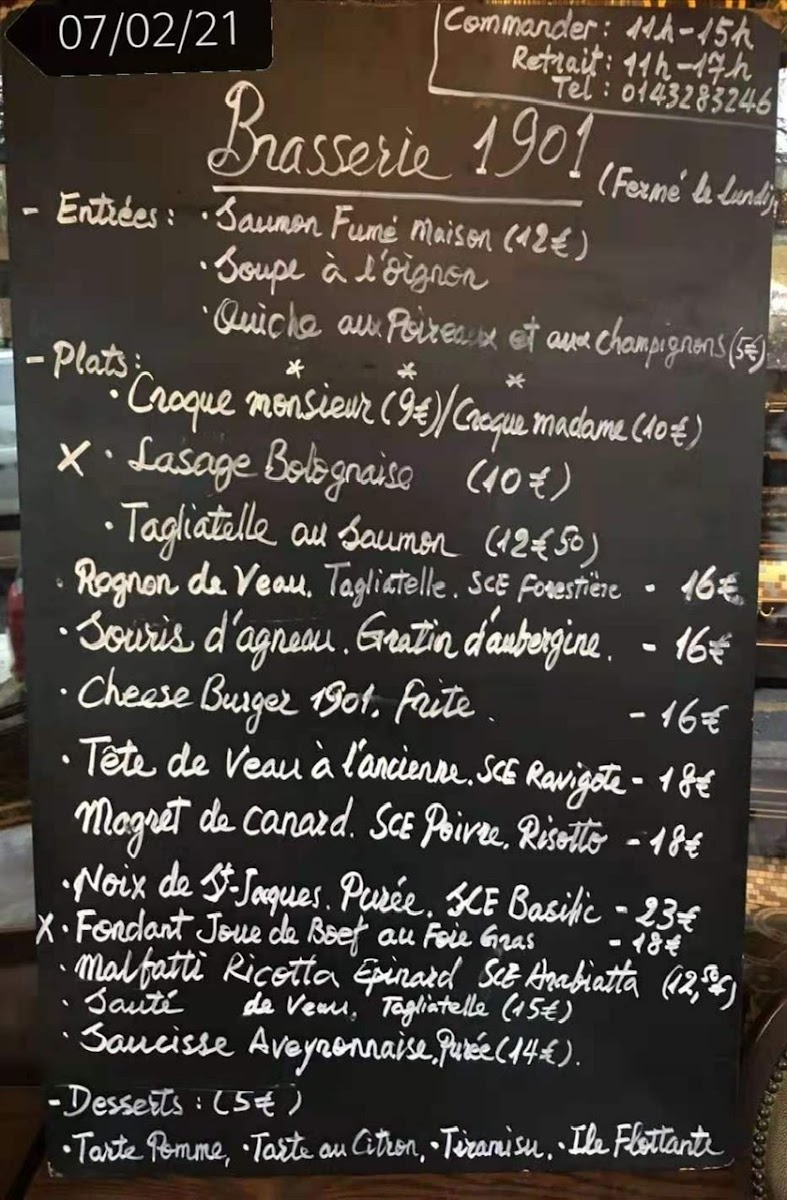 07/02/21
Commander : 11h-15h
Retrait : 11h-17h
Tel : 0143283246
Brasserie 1901
(Fermé le lundi)
- Entrées : · Saumon Fumé Maison (12€)
· Soupe à l'oignon
· Quiche aux Poireaux et aux champignons (5€)
- Plats :
* * *
· Croque monsieur (9€)/Croque madame (10€)
X · Lasage Bolognaise (10€)
· Tagliatelle au Saumon (12€50)
· Rognon de Veau. Tagliatelle. SCE Forestière - 16€
· Souris d'agneau. Gratin d'aubergine. - 16€
· Cheese Burger 1901. frite. - 16€
· Tête de Veau à l'ancienne. SCE Ravigote - 18€
Magret de canard. SCE Poivre. Risotto - 18€
· Noix de St-Jaques. Purée. SCE Basilic - 23€
X · Fondant Joue de Boef au Foie Gras - 18€
· Malfatti Ricotta Epinard SCE Arabiatta (12,50€)
· Sauté de Veau. Tagliatelle (15€)
· Saucisse Aveyronnaise, Purée (14€).
- Desserts : (5€)
· Tarte Pomme, · Tarte au Citron, · Tiramisu, · Ile Flottante